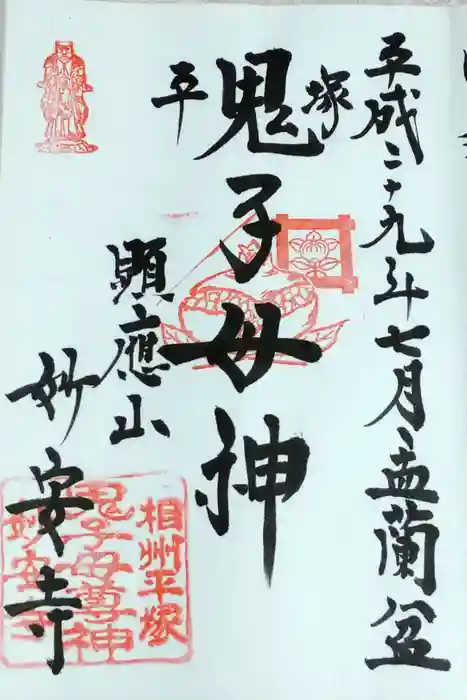 平成二十九年七月盂蘭盆
平塚
鬼子母神
顯應山
妙安寺
相州平塚
鬼子母尊神
妙安寺